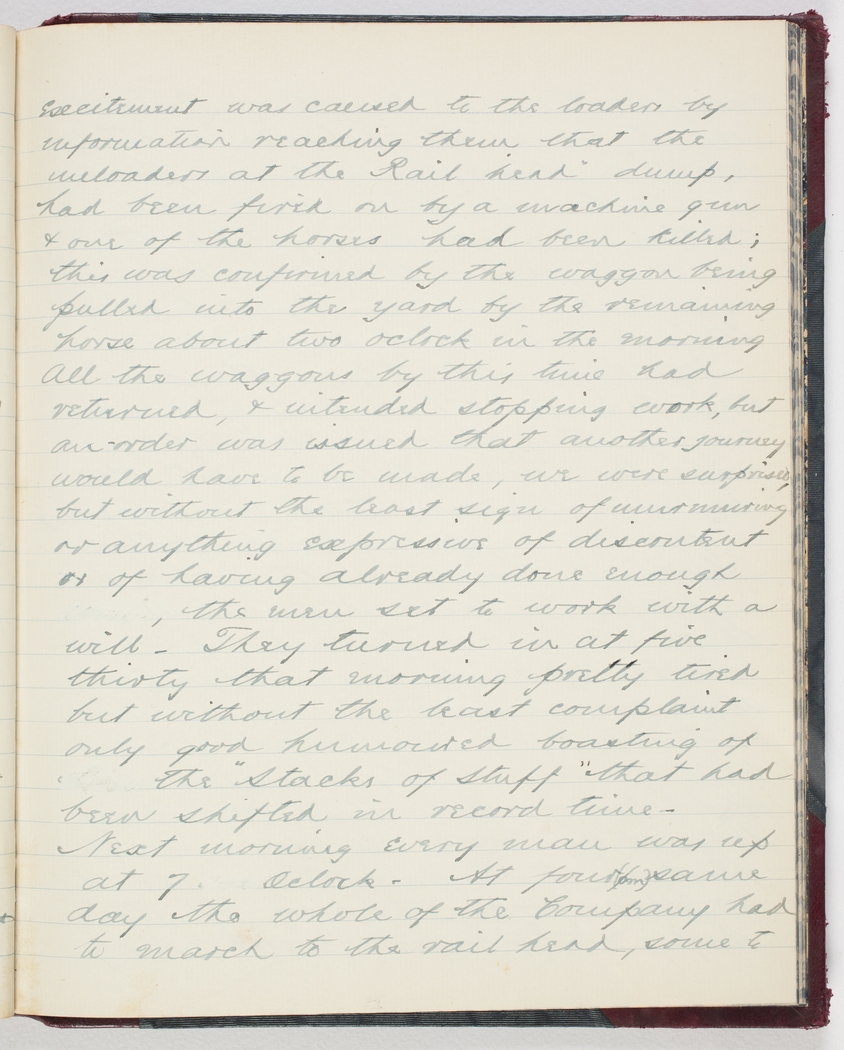 Excitement was caused to the loaders by
information reaching them that the
unloaders at the Rail head" dump,
had been fired on by a machine gun
& one of the horses had been killed;
this was confirmed by the waggon being
pulled into the yard by the remaining
horse about two oclock in the morning
All the waggons by this time had
returned, & intended stopping work, but
an order was issued that another journey
would have to be made, we were surprised,
but without the least sign of murmuring
or anything expressive of discontent
or of having already done enough
, the men set to work with a
will - They turned in at five
thirty that morning pretty tired
but without the least complaint
only good humoured boasting of
the "Stacks of Stuff" that had
been shifted in record time -
Next morning every man was up
at 7. Oclock - At four (pm) same
day the whole of the Company had
to march to the rail head, some to